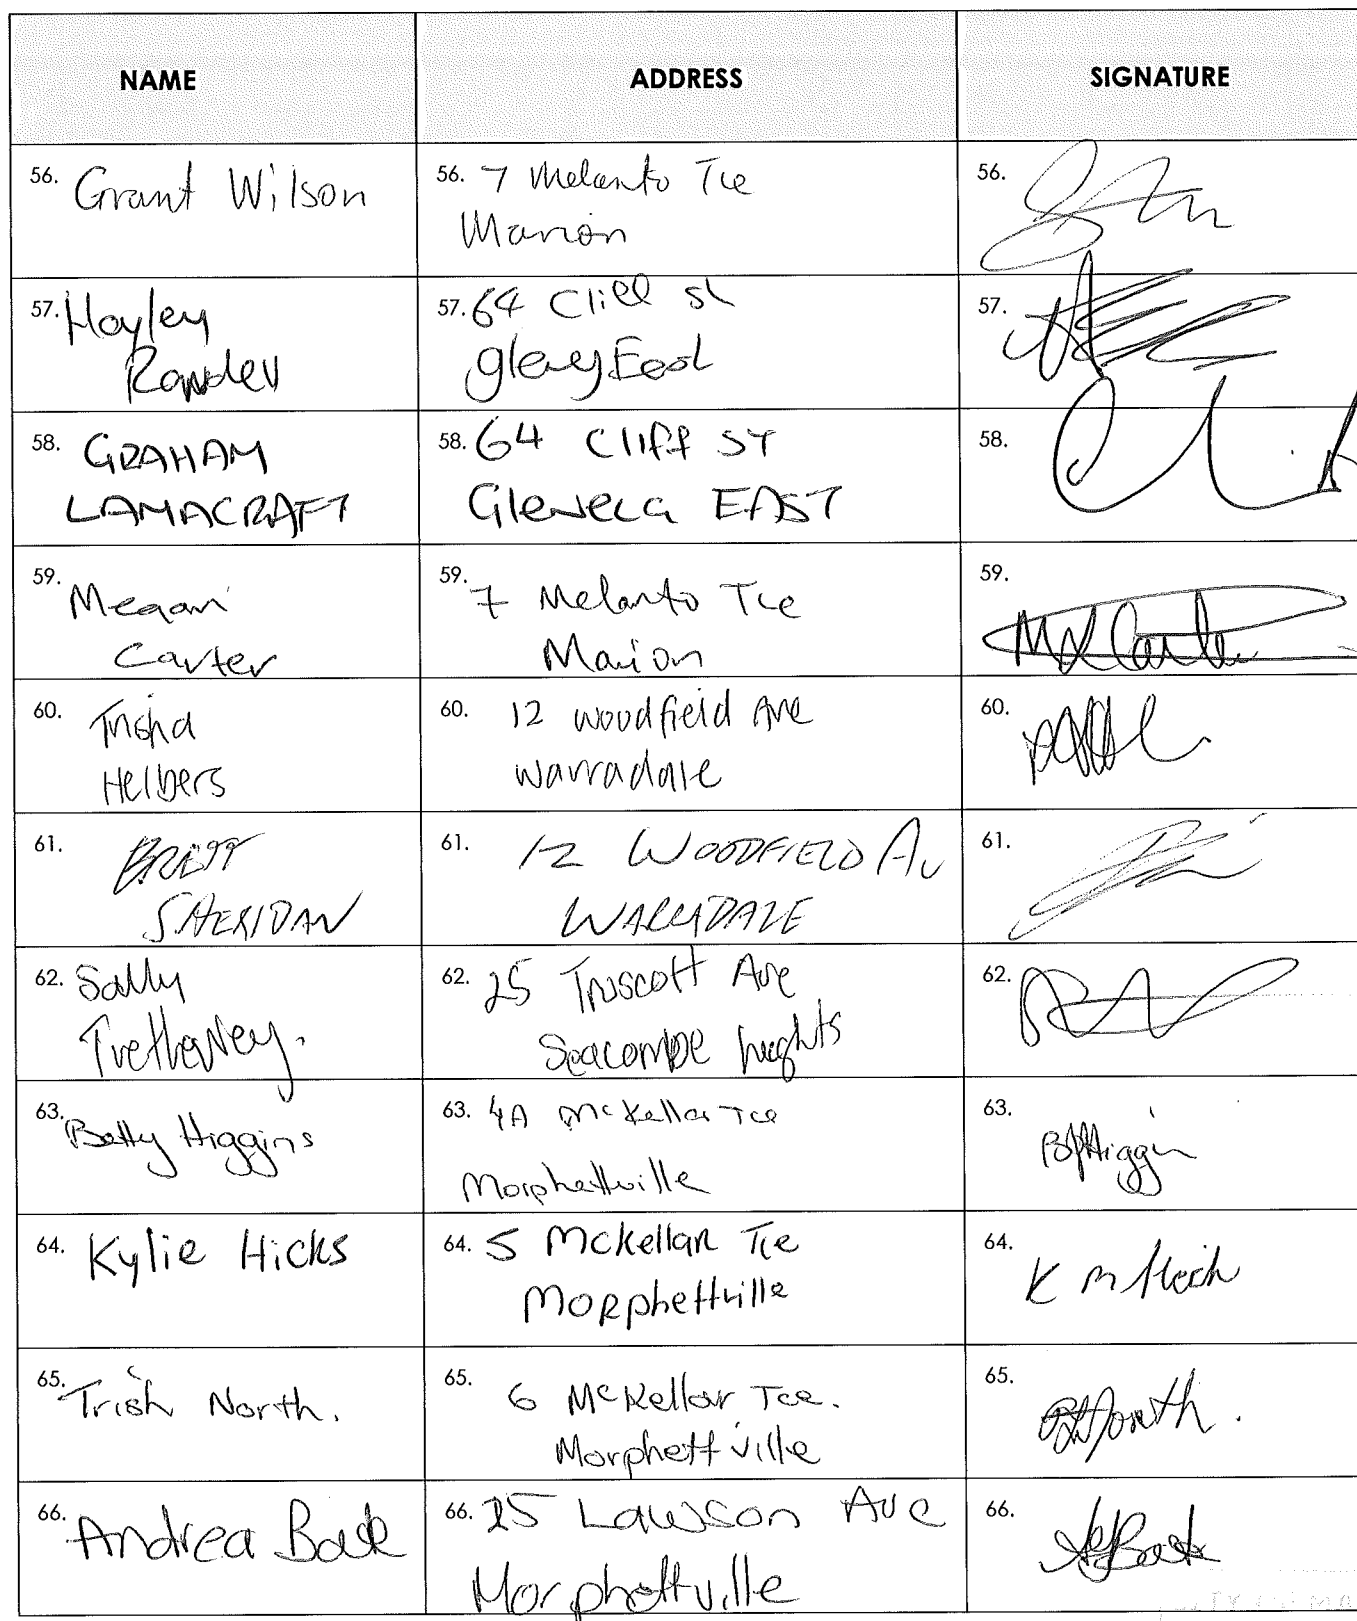 NAME ADDRESS SIGNATURE
56. Grant Wilson
56. 7 Melanto Tce
Marion
56.
57. Hayley
57. 64 Cliff St
57.
58. GRAHAM
LAMACRAFT
58. 64 Cliff ST
Glenelg EAST
58.
59. Megan
Carter
59. 7 Melanto Tce
Marion
59.
60. Trisha
Helbers
60. 12 Woodfield Ave
Warradale
60.
61. BRETT
SHERIDAN
61. 12 WOODFIELD AV
61.
62. Sally
Trethewey.
62. 25 Truscott Ave
Seacombe heights
62.
63. Betty Higgins
63. 4A McKellar Tce
Morphettville
63.
64. Kylie Hicks
64. 5 McKellar Tce
Morphettville
64.
65. Trish North.
65. 6 McKellar Tce.
Morphettville
65.
66. Andrea
66. 25 Lawson Ave
Morphettville
66.